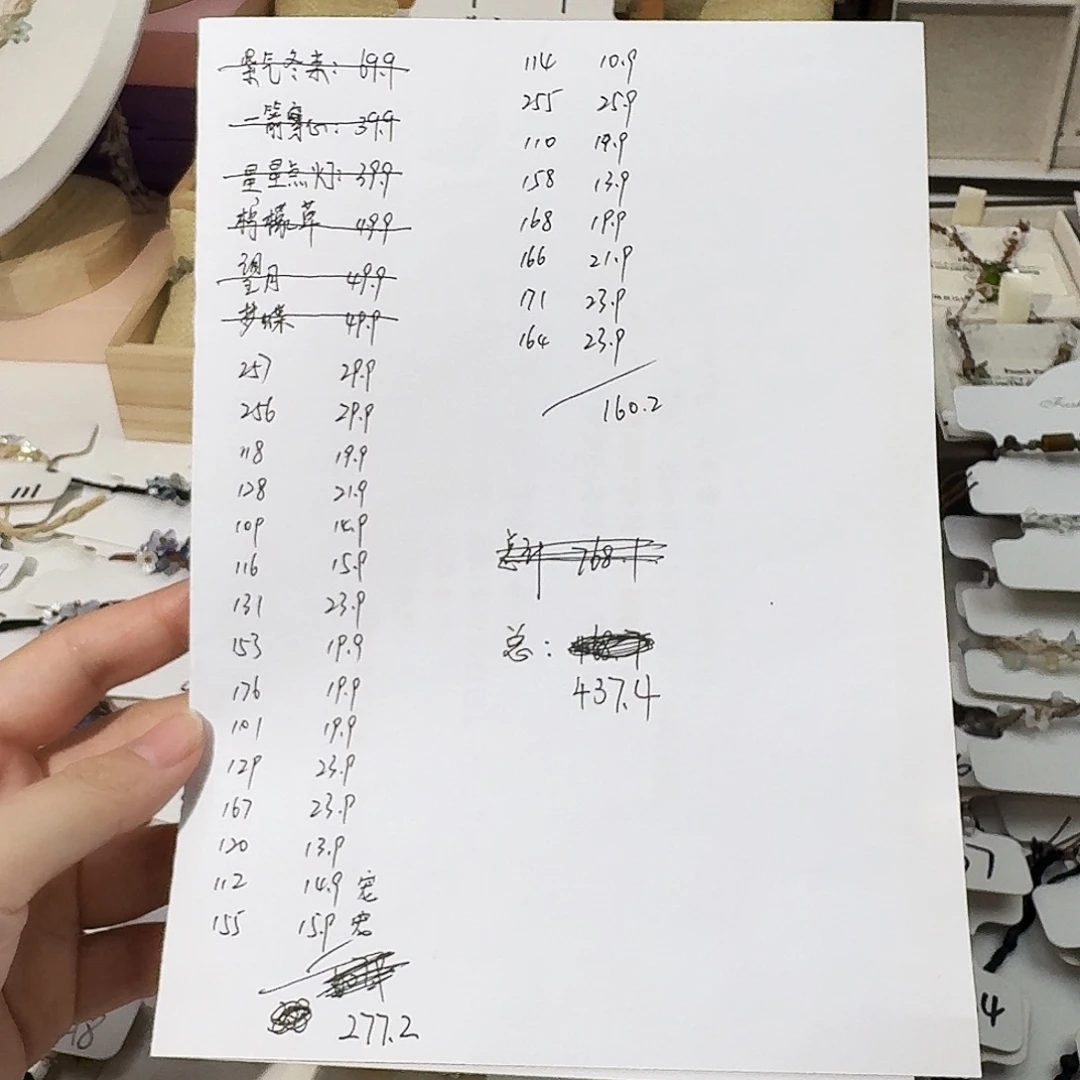 紫气冬来: 69.9
一箭穿心: 39.9
星星点灯: 39.9
柠檬草 49.9
望月 49.9
梦蝶 49.9
257 29.9
256 29.9
118 19.9
128 21.9
109 14.9
116 15.9
131 23.9
153 19.9
176 19.9
101 19.9
129 23.9
167 23.9
120 13.9
112 14.9 宠
155 15.9 宠
277.2
114 10.9
255 25.9
110 19.9
158 13.9
168 19.9
166 21.9
171 23.9
164 23.9
160.2
总计 768.1
总:
437.4
111